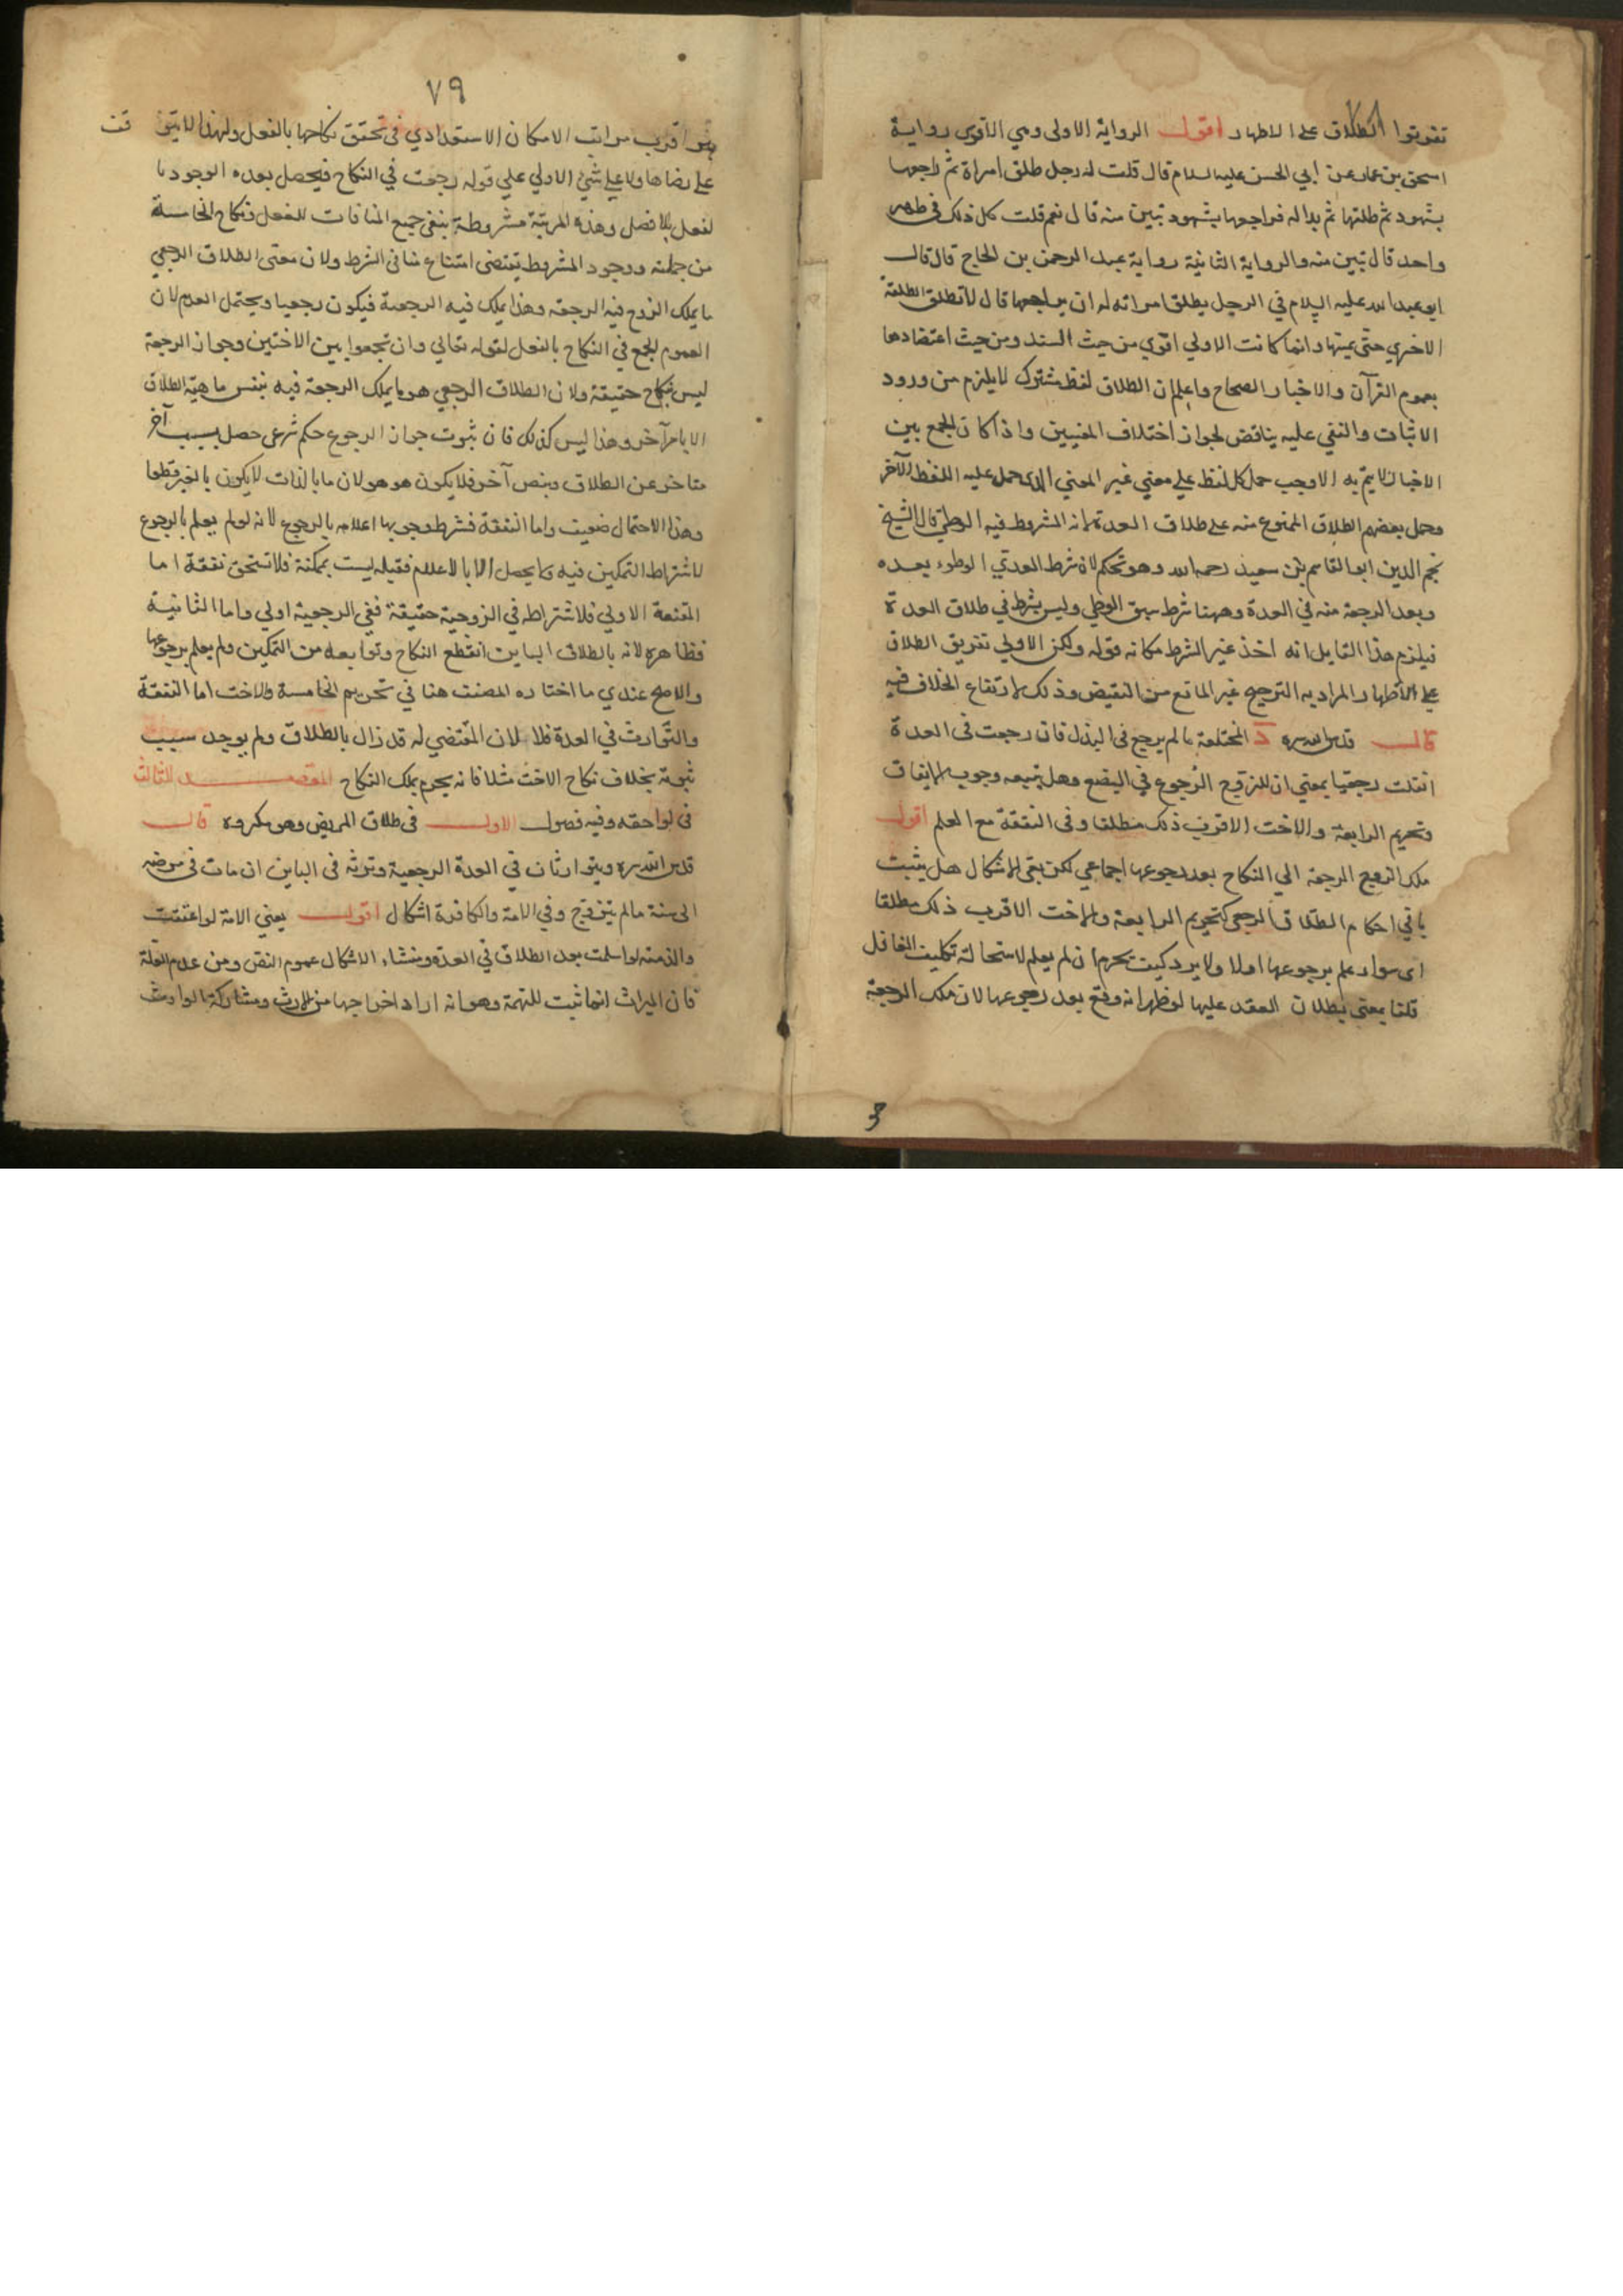 ٧٨
تفريق الطلاق على الاطهار اقول الرواية الاولى وهي الاقوى رواية
اسحق بن عمار عن ابي الحسن عليه السلام قال قلت له رجل طلق امراة ثم راجعها
بشهود ثم طلقها ثم بدا له فراجعها بشهود تبين منه قال نعم قلت كل ذلك في طهر
واحد قال تبين منه والرواية الثانية رواية عبد الرحمن بن الحاج قال قال
ابو عبد الله عليه السلام في الرجل يطلق امراته له ان يراجعها قال لا تطلق الطلقة
الاخري حتى يمسها وانما كانت الاولي اقوي من حيث السند ومن حيث اعتضادها
بعموم القرآن والاخبار الصحاح واعلم ان الطلاق لفظ مشترك لا يلزم من ورود
الاثبات والنفي عليه يناقض لجواز اختلاف المعنيين واذا كان الجمع بين
الاخبار لا يتم به الا وجب حمل كل لفظ علي معني غير المعني الذي حمل عليه اللفظ الآخر
وحمل بعضهم الطلاق الممنوع منه على طلاق العدة لانه المشروط فيه الوطي قال الشيخ
نجم الدين ابو القاسم بن سعيد رحمه الله وهو تحكم لان شرط العدي الوطوء بعده
وبعد الرجعة منه في العدة وههنا شرط سبق الوطي وليس بشرط في طلاق العدة
فيلزم هذا القايل انه اخذ غير الشرط مكانه قوله ولكن الاولي تفريق الطلاق
علي الاطهار المراد به الترجيح غير المانع من النقيض وذلك لارتفاع الخلاف فيه
قال قدس الله سره د المختلعة ما لم يرجع في البذل فان رجعت في العدة
انقلبت رجعيا بمعني ان للزوج الرجوع في البضع وهل يتبعه وجوب الانفاق
وتحريم الرابعة والاخت الاقرب ذلك مطلقا وفي النفقة مع العلم اقول
ملك الزوج الرجعة الي النكاح بعد رجوعها اجماعي لكن بقي الاشكال هل يثبت
باقي احكام الطلاق الرجعي كتحريم الرابعة والاخت الاقرب ذلك مطلقا
اى سواء علم برجوعها اولا ولا يرد كيف يحرم ان لم يعلم لاستحالة تكليف الغافل
قلنا بمعنى بطلان العقد عليها لو ظهر انه وقع بعد رجوعها لان ملك الرجعة
٧٩
هو اقرب مراتب الامكان الاستعدادي في تحقق نكاحها بالفعل ولهذا لا يتوقف
على رضاها ولا علي شئ الا ولي علي قوله رجعت في النكاح فيحصل بعده الوجود با
لفعل بلا فصل وهذه المرتبة مشروطة بنفي جميع المنافات للفعل فنكاح الخامسة
من جملته ووجود المشروط يقتضي امتناع منافي الشرط ولان معنى الطلاق الرجعي
ما يملك الزوج فيه الرجعة وهذا يملك فيه الرجعة فيكون رجعيا ويحتمل العدم لان
العموم للجمع في النكاح بالفعل لقوله تعالي وان تجمعوا بين الاختين وجواز الرجعة
ليس بنكاح حقيقة ولان الطلاق الرجعي هو ما يملك الرجعة فيه بنفس ماهية الطلاق
الا بامر آخر وهذا ليس كذلك فان ثبوت جواز الرجوع حكم شرعي حصل بسبب آخر
متاخر عن الطلاق وبنص آخر فلا يكون هو هو لان ما بالذات لا يكون بالغير قطعا
وهذا الاحتمال ضعيف واما النفقة فشرط وجوبها اعلامه بالرجوع لانه لو لم يعلم بالرجوع
لاشتراط التمكين فيه وما يحصل الا بالاعلام فقبله ليست بممكنة فلا تستحق نفقة اما
المقدمة الاولي فلاشتراطه في الزوجية حقيقة ففي الرجعية اولي واما الثانية
فظاهره لانه بالطلاق الباين انقطع النكاح وتوابعه من التمكين ولم يعلم برجوعها
والاصح عندي ما اختاره المصنف هنا في تحريم الخامسة والاخت اما النفقة
والتوارث في العدة فلا لان المقتضي له قد زال بالطلاق ولم يوجد سبب
ثبوته بخلاف نكاح الاخت مثلا فانه يحرم بملك النكاح المقصد الثالث
في لواحقه وفيه فصول الاول في طلاق المريض وهو مكروه قال
قدس الله سره ويتوارثان في العدة الرجعية وترثه في الباين ان مات في مرضه
الى سنة ما لم يتزوج وفي الامة والكافرة اشكال اقول يعني الامة لو اعتقت
والذمية لو اسلمت بعد الطلاق في العدة ومنشاء الاشكال عموم النص ومن عدم العلة
فان الميراث انما ثبت للتهمة وهو انه اراد اخراجها من الارث ومشاركة الوارث